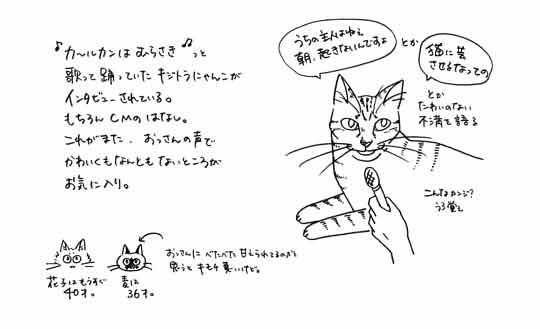 ♪カールカンは むらさき♪っと
歌って踊っていた キジトラにゃんこが
インタビューされている。
もちろん CMのはなし。
これがまた、おっさんの声で
かわいくもなんとも ないところが
お気に入り。
うちの主人はねぇ
朝、起きないんですよ
とか
猫に芸
させるなっての
とか
たわいのない
不満を語る
こんなカンジ?
うろ覚え
花子はもうすぐ
40才。
麦は
36才。
おっさんに べたべた 甘えられてるのかと
思うと キモチ 悪いけど。